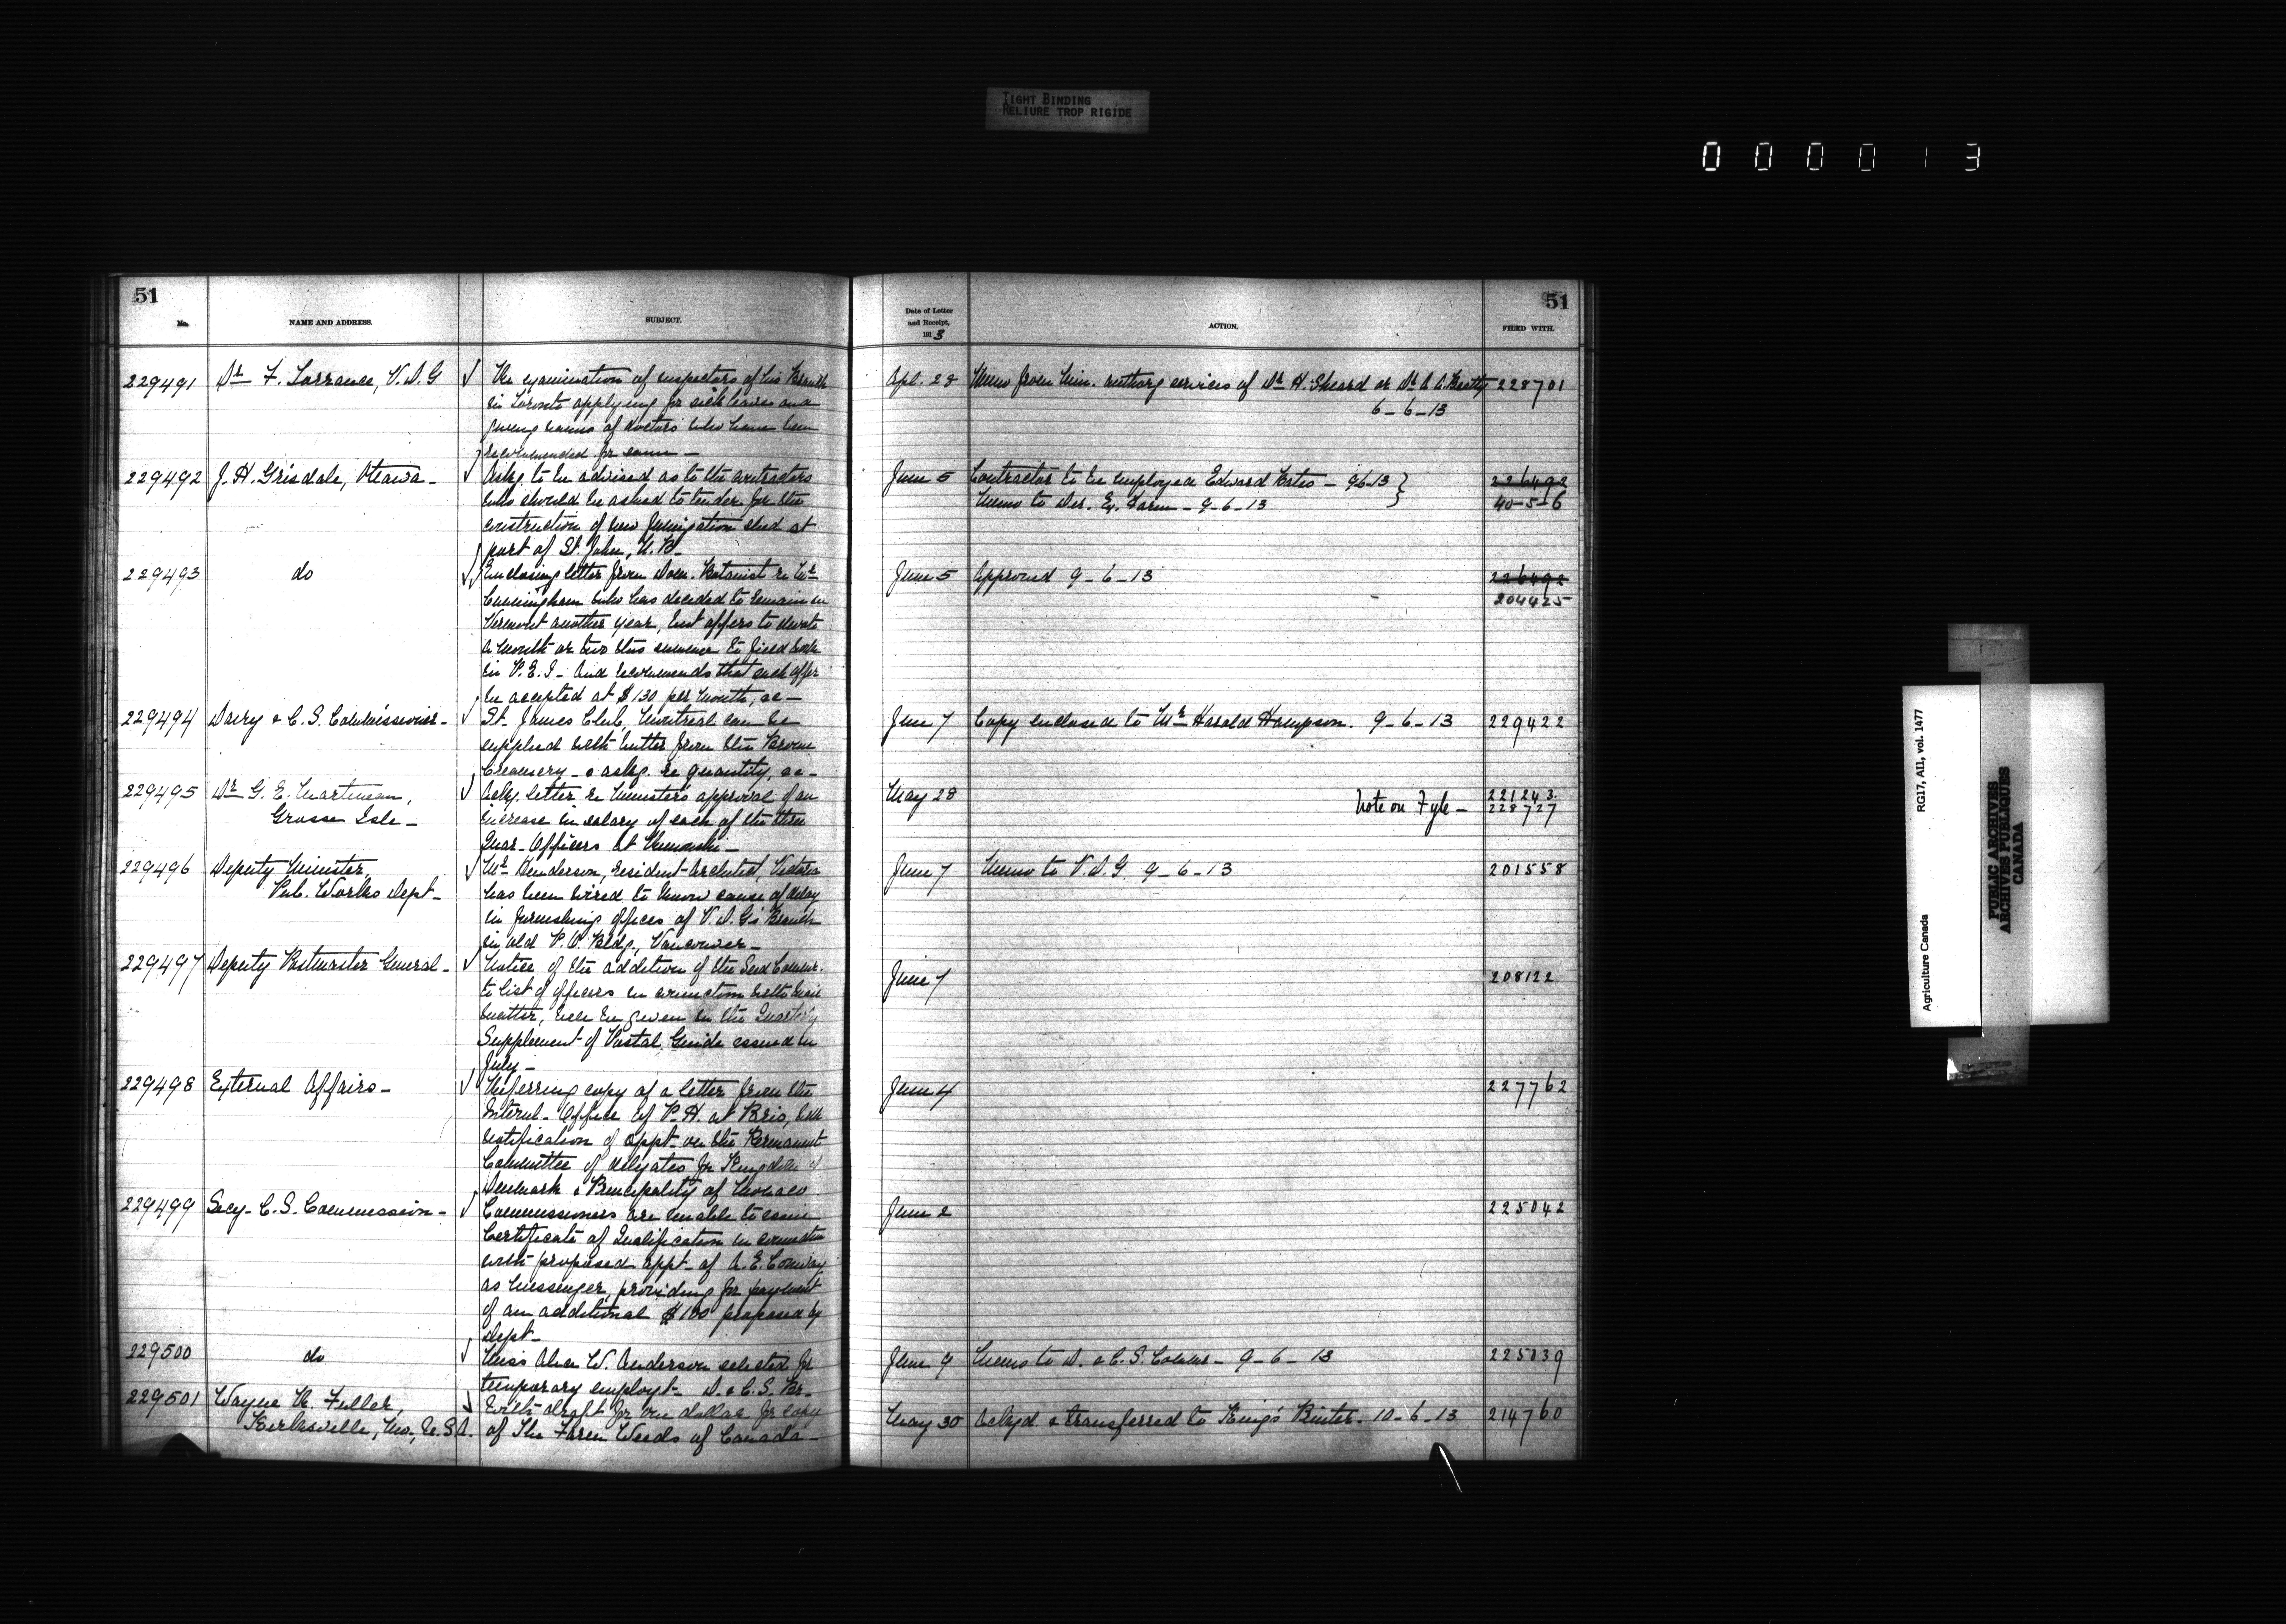 TIGHT BINDING
RELIURE TROP RIGIDE
000013
51
No.
NAME AND ADDRESS.
SUBJECT.
229491 Dr. F. Torrance, V.D.G √ Re examination of inspectors of his Branch
in Toronto applying for sick leave and
giving names of doctors who have been
recommended for same –
229492 J. H. Grisdale, Ottawa – √ Askg. to be advised as to the contractors
who should be asked to tender for the
construction of new fumigation shed at
port of St. John, N.B –
229493 do √ Enclosing letter from Dom. Botanist re Mr.
Cunningham who has decided to remain in
Vermont another year, but offers to devote
a month or two this summer to field work
in P.E.I – and recommends that such offer
be accepted at $130 per month, &c –
229494 Dairy & C.S. Commissioner – √ St. James Club, Montreal can be
supplied with butter from the Brome
Creamery – & askg. re quantity, &c –
229495 Dr. G. E. Martineau, √ Ackg. letter re Minister's approval of an
Grosse Isle – increase in salary of each of the three
Quar. Officers at Rimouski –
229496 Deputy Minister, √ Mr. Henderson, resident-architect, Victoria
Pub. Works Dept – has been wired to know cause of delay
in furnishing offices of V.D.G's Branch
in old P.O. Bldg., Vancouver –
229497 Deputy Postmaster General – √ Notice of the addition of the Seed Commr.
to list of officers in connection with mail
matter, will be given in the Quarterly
Supplement of Postal Guide issued in
July –
229498 External Affairs – √ Referring copy of a letter from the
Internl. Office of P.H. at Paris, with
notification of appt. on the Permanent
Committee of delegates for Kingdom of
Denmark & Principality of Monaco
229499 Secy – C.S. Commission – √ Commissioners are unable to issue
Certificate of Qualification in connection
with proposed appt. of A. E. Conway
as Messenger, providing for payment
of an additional $100 proposed by
dept –
229500 do √ Miss Alva W. Anderson selected for
temporary employt – D. & C.S. Br –
229501 Wayne R. Fuller, √ With draft for one dollar for copy
Kirksville, Mo., U.S.A. of The Farm Weeds of Canada –
51
Date of Letter
and Receipt,
1913
ACTION.
FILED WITH.
Apl. 28 Memo from Min. authorg services of Dr. H. Sheard or Dr. A. A. Beatty 228701
6–6–13
June 5 Contractor to be employed Edward Bates – 9-6-13 226492
Memo to Dir. Ex. Farm – 9–6–13 40–5–6
June 5 Approved 9–6–13 226492
204425
June 7 Copy enclosed to Mr. Harold Hampson. 9–6–13 229422
May 28 221243.
Note on Fyle – 228727
June 7 Memo to V.D.G. 9–6–13 201558
June 7 208122
June 4 227762
June 2 225042
June 9 Memo to D. & C.S. Commr – 9–6–13 225039
May 30 Ackgd & transferred to King's Printer. 10–6–13 214760
Agriculture Canada RG17, AII, vol. 1477
PUBLIC ARCHIVES
ARCHIVES PUBLIQUES
CANADA